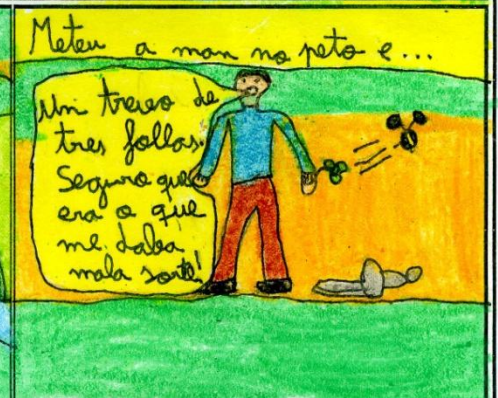 Meteu a man no peto e...
Un trevo de
tres follas.
Seguro que
era o que
me daba
mala sorte!